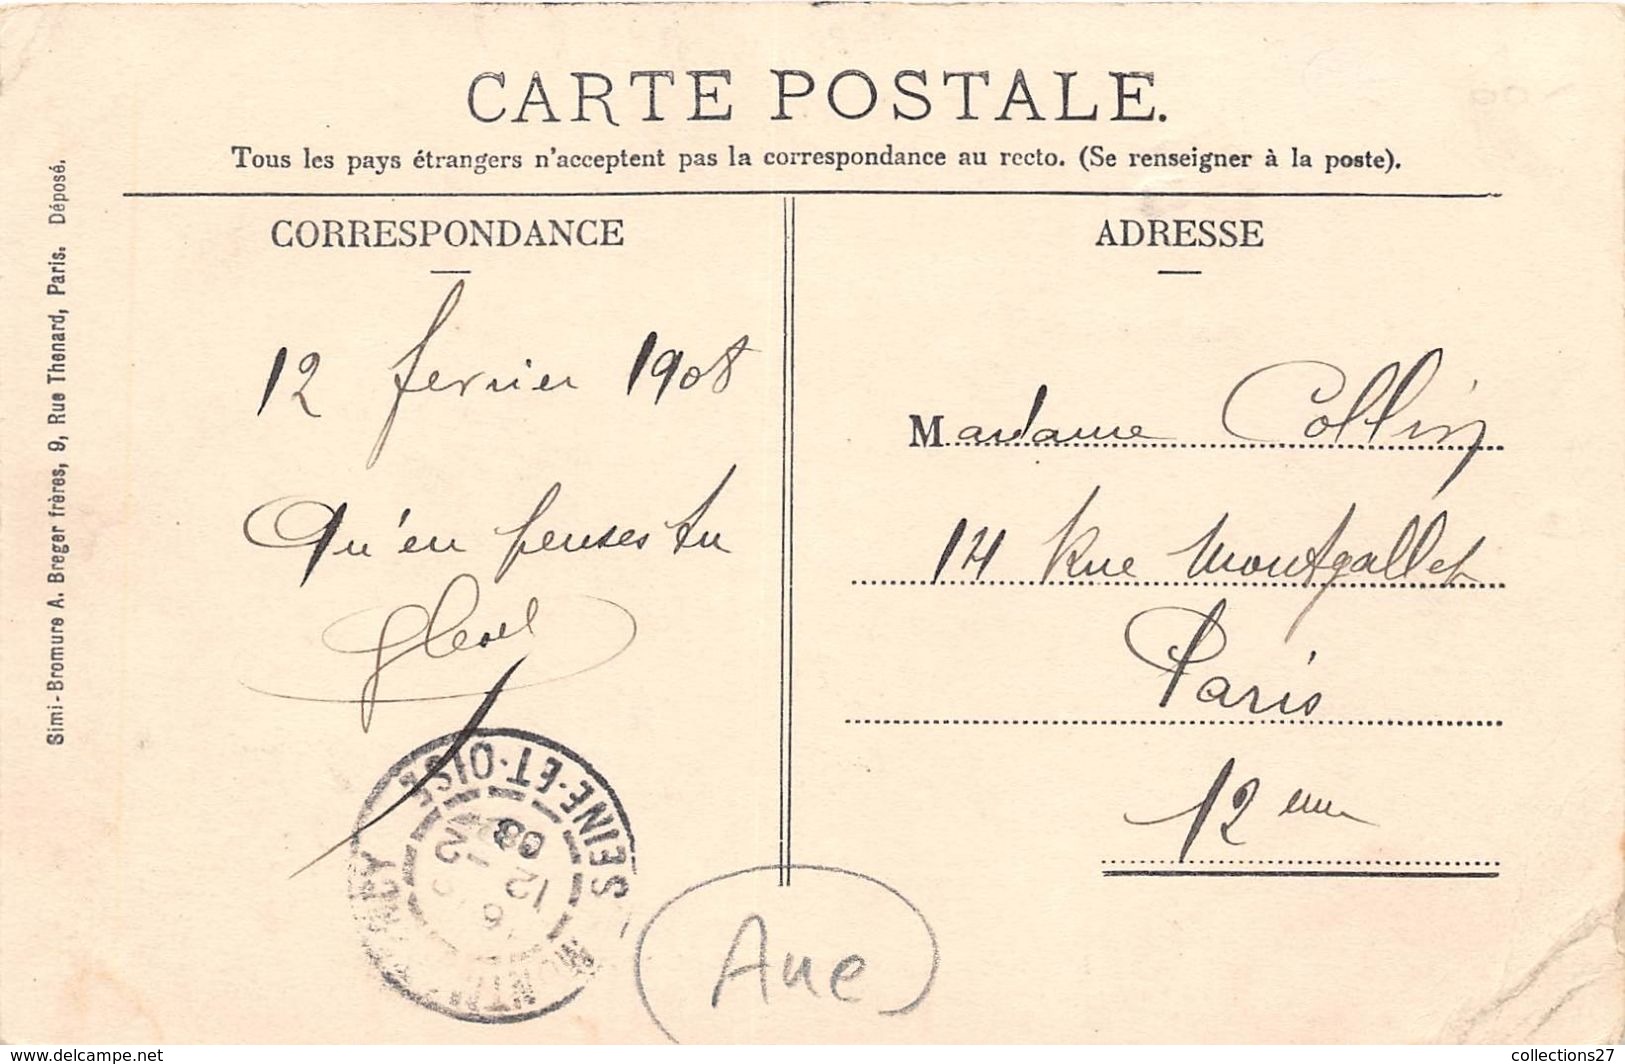 CARTE POSTALE.
Tous les pays étrangers n'acceptent pas la correspondance au recto. (Se renseigner à la poste).
Simi-Bromure A. Breger frères, 9, Rue Thenard, Paris. Déposé.
CORRESPONDANCE
12 fevrier 1908
Qu'en penses tu
ADRESSE
Madame Collin
14 Rue Montgallet
Paris
12 eme
SEINE-ET-OISE
12
08
Ane
www.delcampe.net
collections27